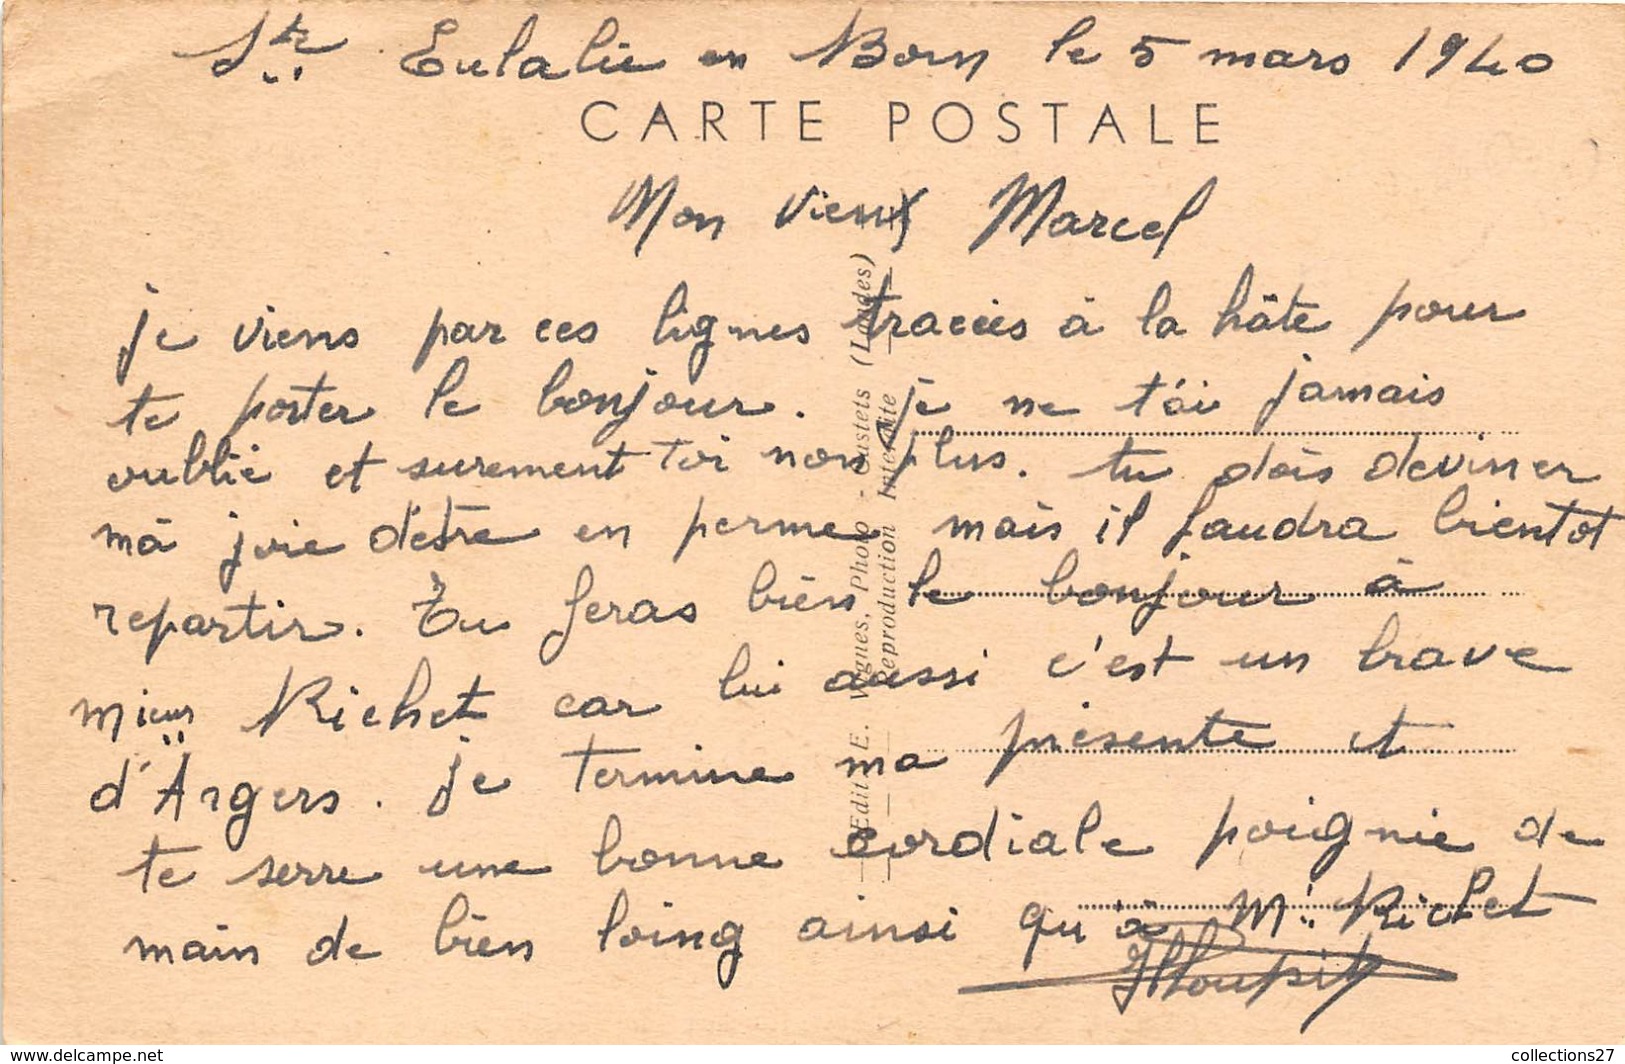 Ste Eulalie en Born le 5 mars 1940
CARTE POSTALE
Mon vieux Marcel
je viens par ces lignes tracées à la hâte pour
te porter le bonjour. je ne t'ai jamais
oublié et surement toi non plus. tu dois deviner
ma joie d'être en perme mais il faudra bientot
repartir. Tu feras bien le bonjour à
Richet car lui aussi c'est un brave
d'Angers. je termine ma présente et
te serre une bonne cordiale poignie de
main de bien loing ainsi qu'à Mr Richet
Edit. E. Vignes, Photo - Castets (Landes)
Reproduction Interdite
www.delcampe.net
collections27